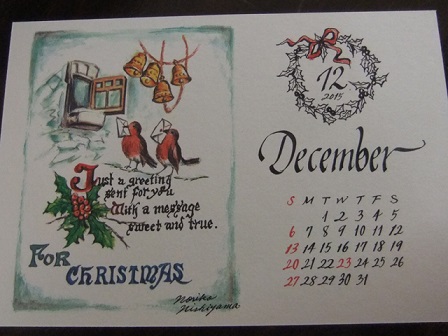 Just a greeting
sent for you
With a message
sweet and true.
FOR
CHRISTMAS
Noriko
Nishiyama
12
2015
December
S M T W T F S
1 2 3 4 5
6 7 8 9 10 11 12
13 14 15 16 17 18 19
20 21 22 23 24 25 26
27 28 29 30 31